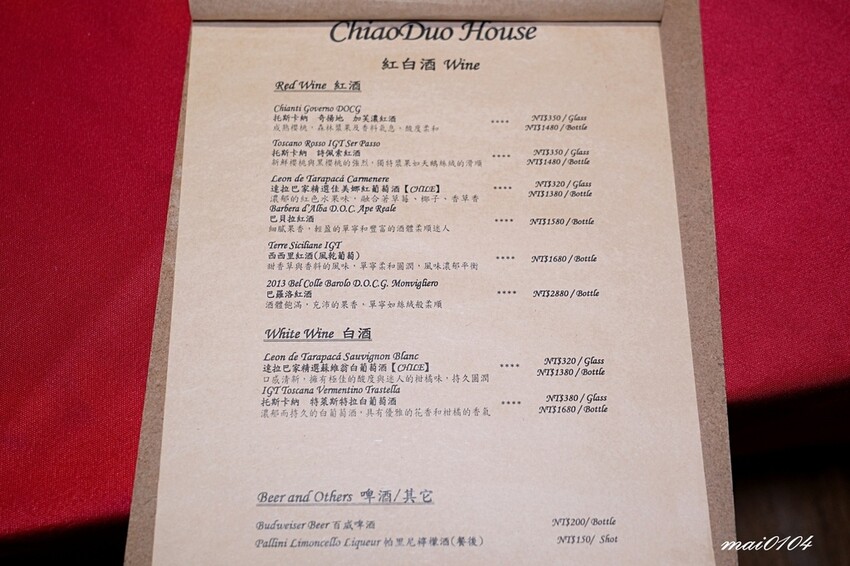 ChiaoDuo House
紅白酒 Wine
Red Wine 紅酒
Chianti Governo DOCG
托斯卡納 奇揚地 加芙濃紅酒
成熟櫻桃、森林漿果及香料氣息，酸度柔和
**** NT$350 / Glass
NT$1480 / Bottle
Toscano Rosso IGT Ser Passo
托斯卡納 詩佩索紅酒
新鮮櫻桃與黑櫻桃的強烈，獨特漿果如天鵝絲絨的滑順
**** NT$350 / Glass
NT$1480 / Bottle
Leon de Tarapacá Carmenere
達拉巴家精選佳美娜紅葡萄酒【CHILE】
濃郁的紅色水果味，融合著草莓、椰子、香草香
**** NT$320 / Glass
NT$1380 / Bottle
Barbera d'Alba D.O.C. Ape Reale
巴貝拉紅酒
細膩果香，輕盈的單寧和豐富的酒體柔順迷人
**** NT$1580 / Bottle
Terre Siciliane IGT
西西里紅酒(風乾葡萄)
甜香草與香料的風味，單寧柔和圓潤，風味濃郁平衡
**** NT$1680 / Bottle
2013 Bel Colle Barolo D.O.C.G. Monvigliero
巴羅洛紅酒
酒體飽滿，充沛的果香。單寧如絲絨般柔順
**** NT$2880 / Bottle
White Wine 白酒
Leon de Tarapacá Sauvignon Blanc
達拉巴家精選蘇維翁白葡萄酒【CHILE】
口感清新，擁有極佳的酸度與迷人的柑橘味，持久圓潤
**** NT$320 / Glass
NT$1380 / Bottle
IGT Toscana Vermentino Trastella
托斯卡納 特萊斯特拉白葡萄酒
濃郁而持久的白葡萄酒。具有優雅的花香和柑橘的香氣
**** NT$380 / Glass
NT$1680 / Bottle
Beer and Others 啤酒/其它
Budweiser Beer 百威啤酒 NT$200/ Bottle
Pallini Limoncello Liqueur 帕里尼檸檬酒(餐後) NT$150/ Shot
mai0104